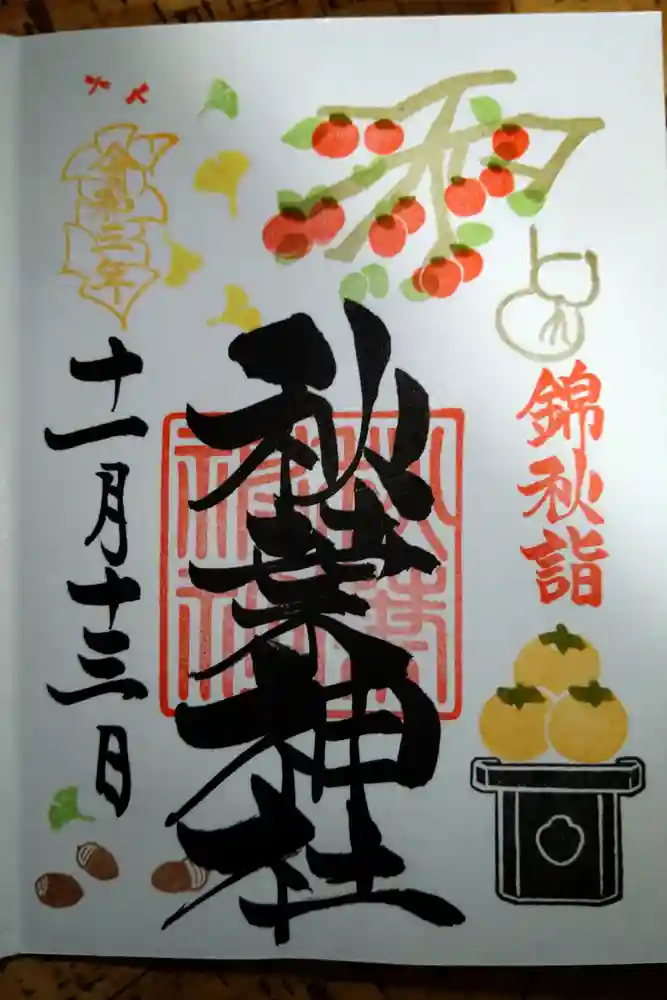 錦秋詣
秋葉神社
令和三年
十一月十三日